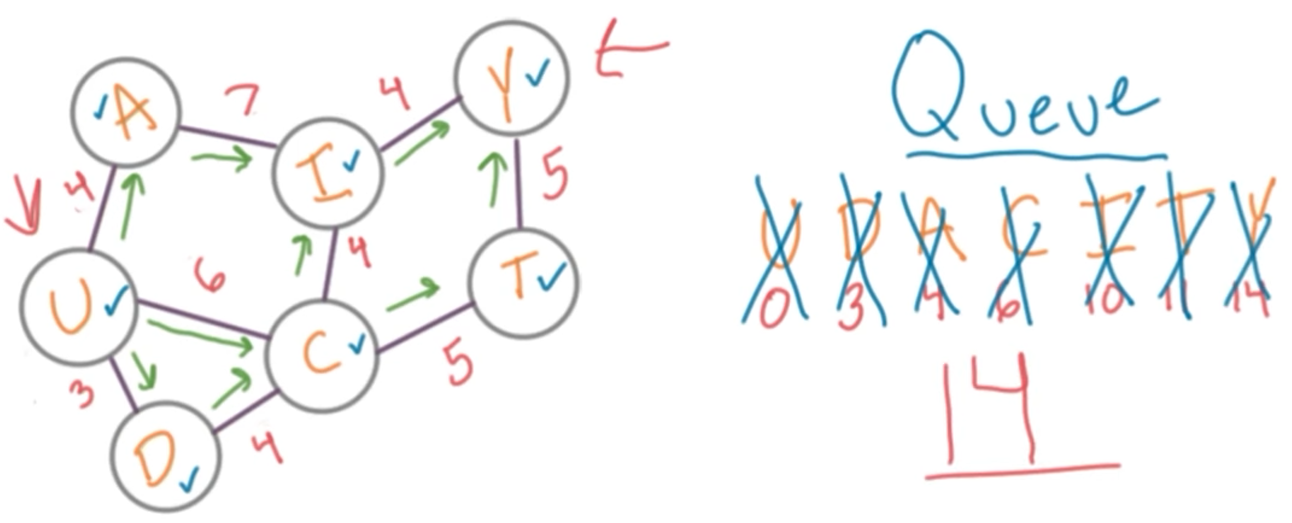 Y
4
A
7
I
5
4
4
T
U
6
C
5
3
D
4
Queue
U D A C I T Y
0 3 4 6 10 11 14
14